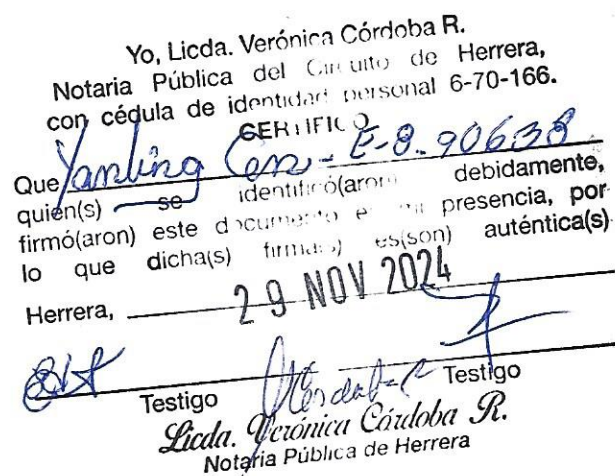 Yo, Licda. Verónica Córdoba R.
Notaria Pública del Circuito de Herrera,
con cédula de identidad personal 6-70-166.
CERTIFICO
Que Yanling Cen - E-8-90638
quien(s) se identificó(aron) debidamente,
firmó(aron) este documento en mi presencia, por
lo que dicha(s) firma(s) es(son) auténtica(s)
Herrera, 29 NOV 2024
Testigo Testigo
Licda. Verónica Córdoba R.
Notaria Pública de Herrera